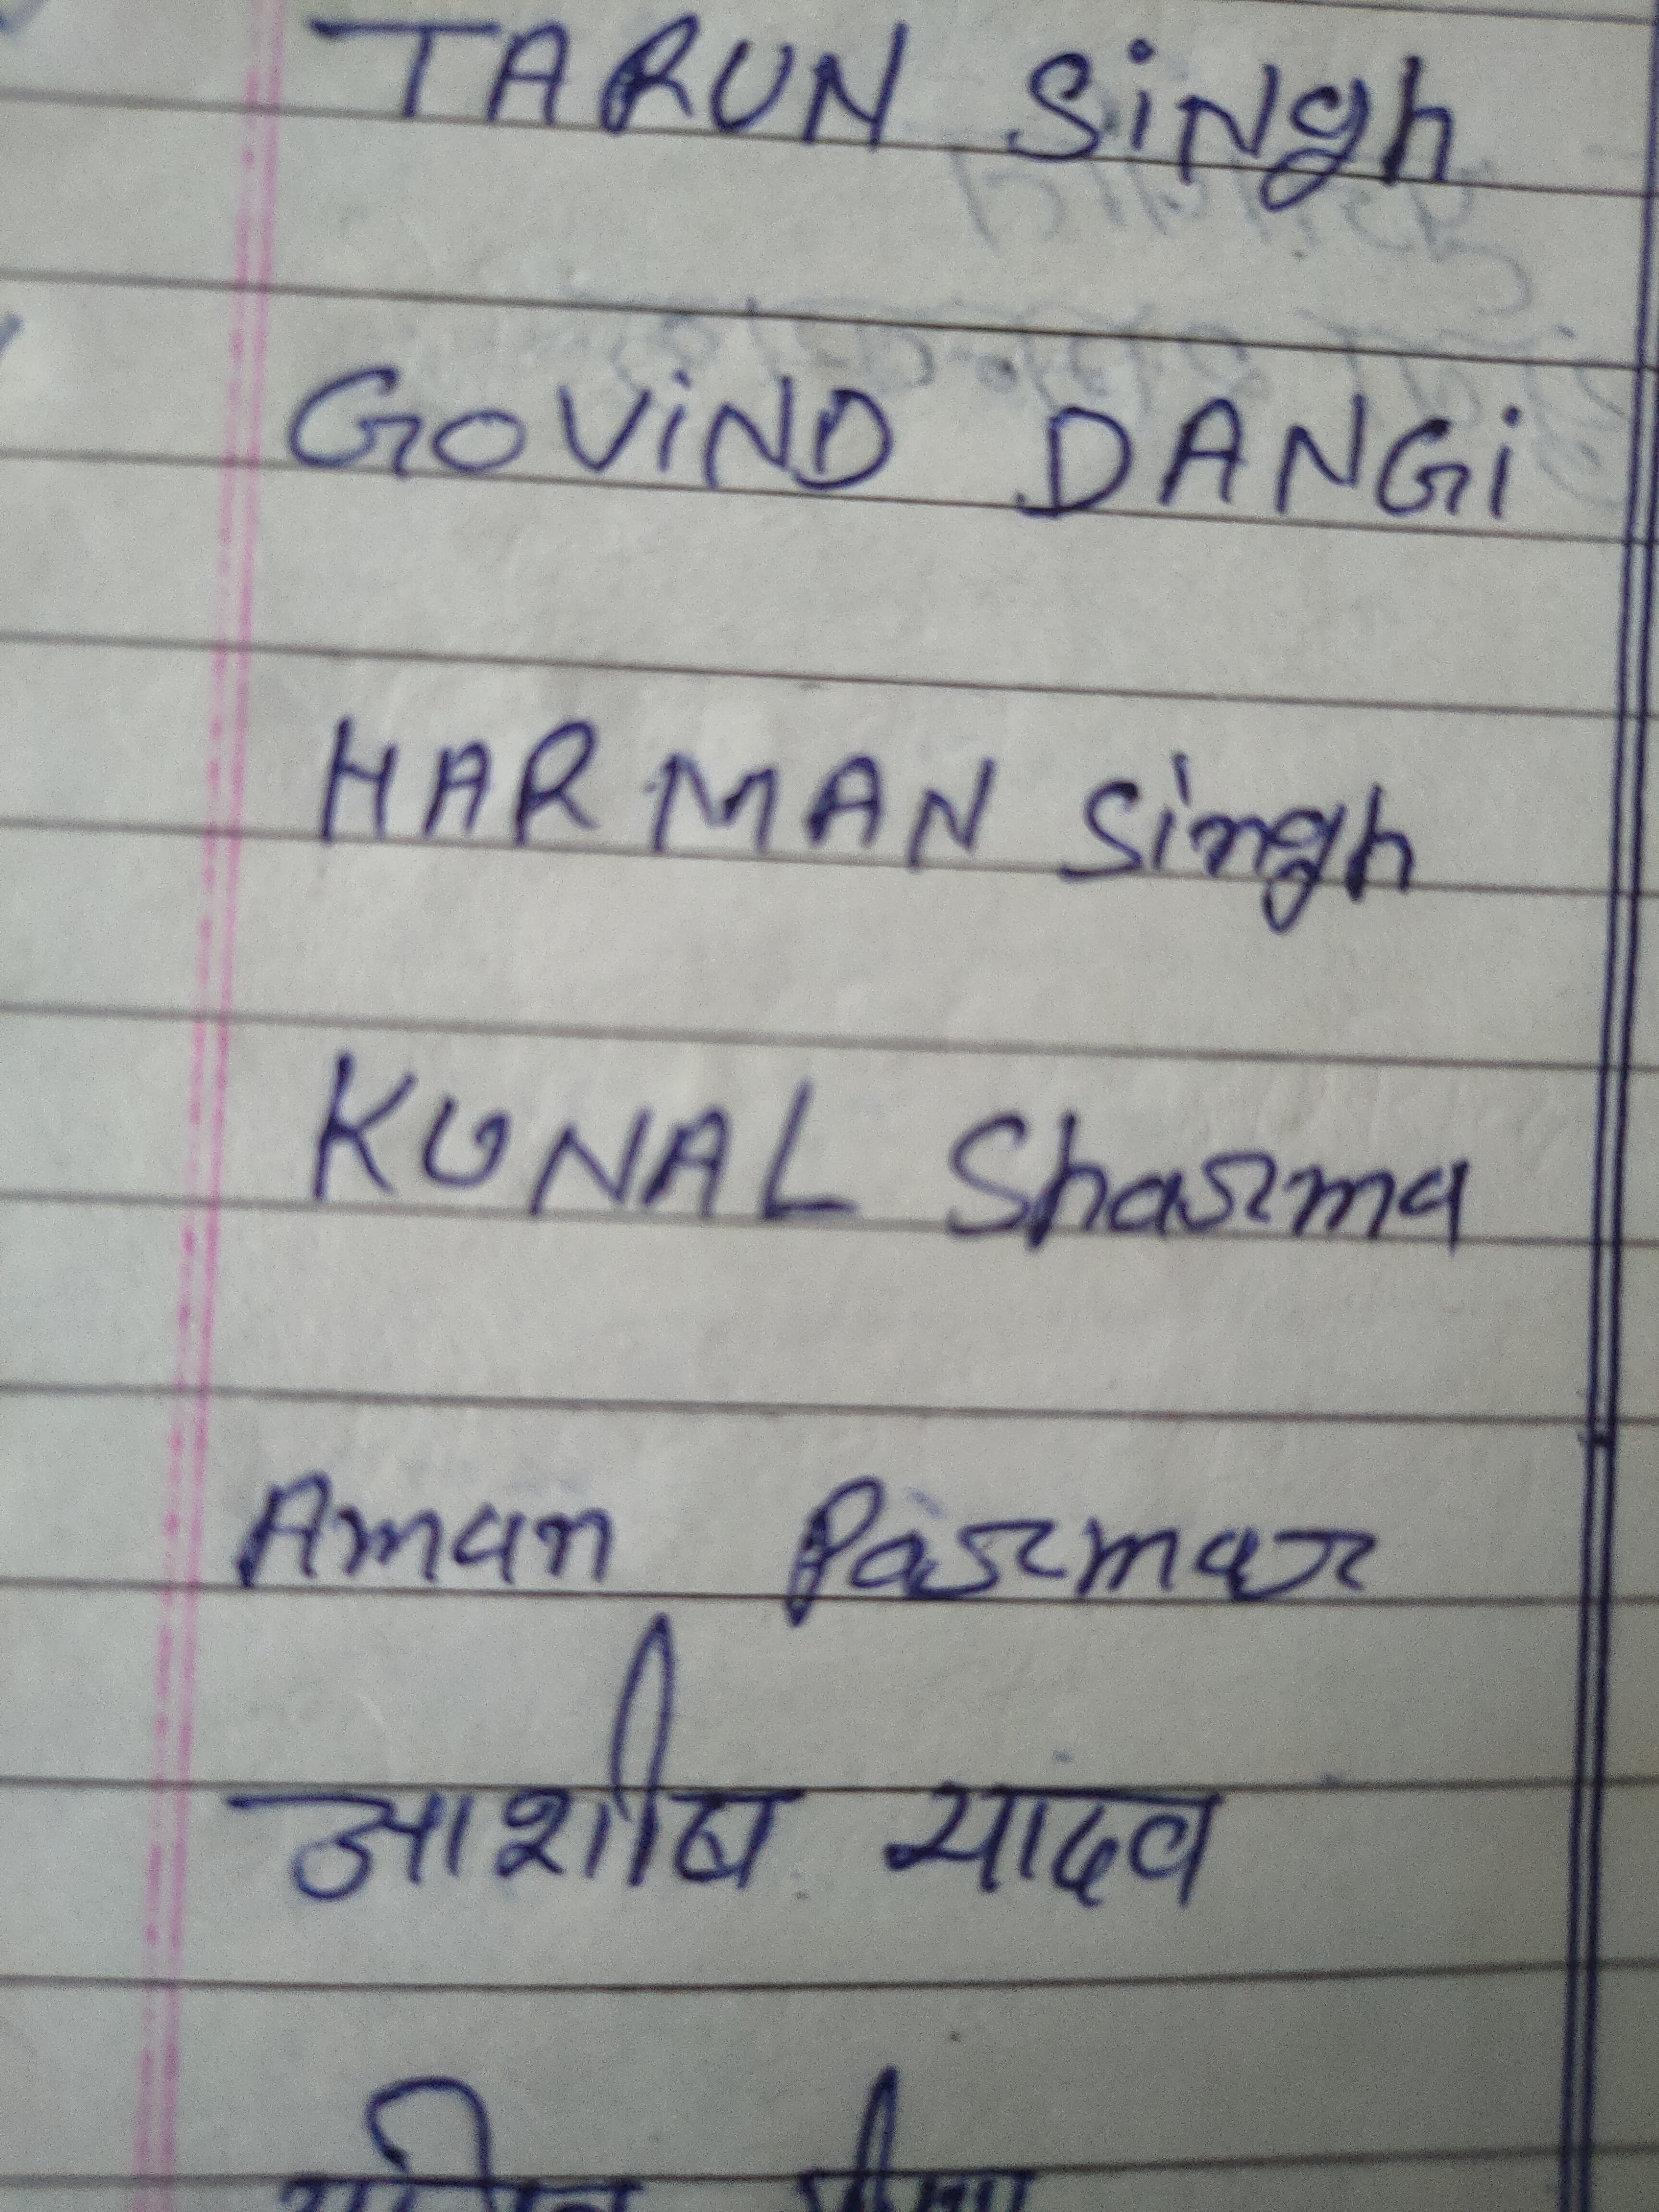 TARUN SiNgh
GOVIND DANGi
HARMAN Singh
KUNAL Sharma
Aman Parmar
आशीष यादव